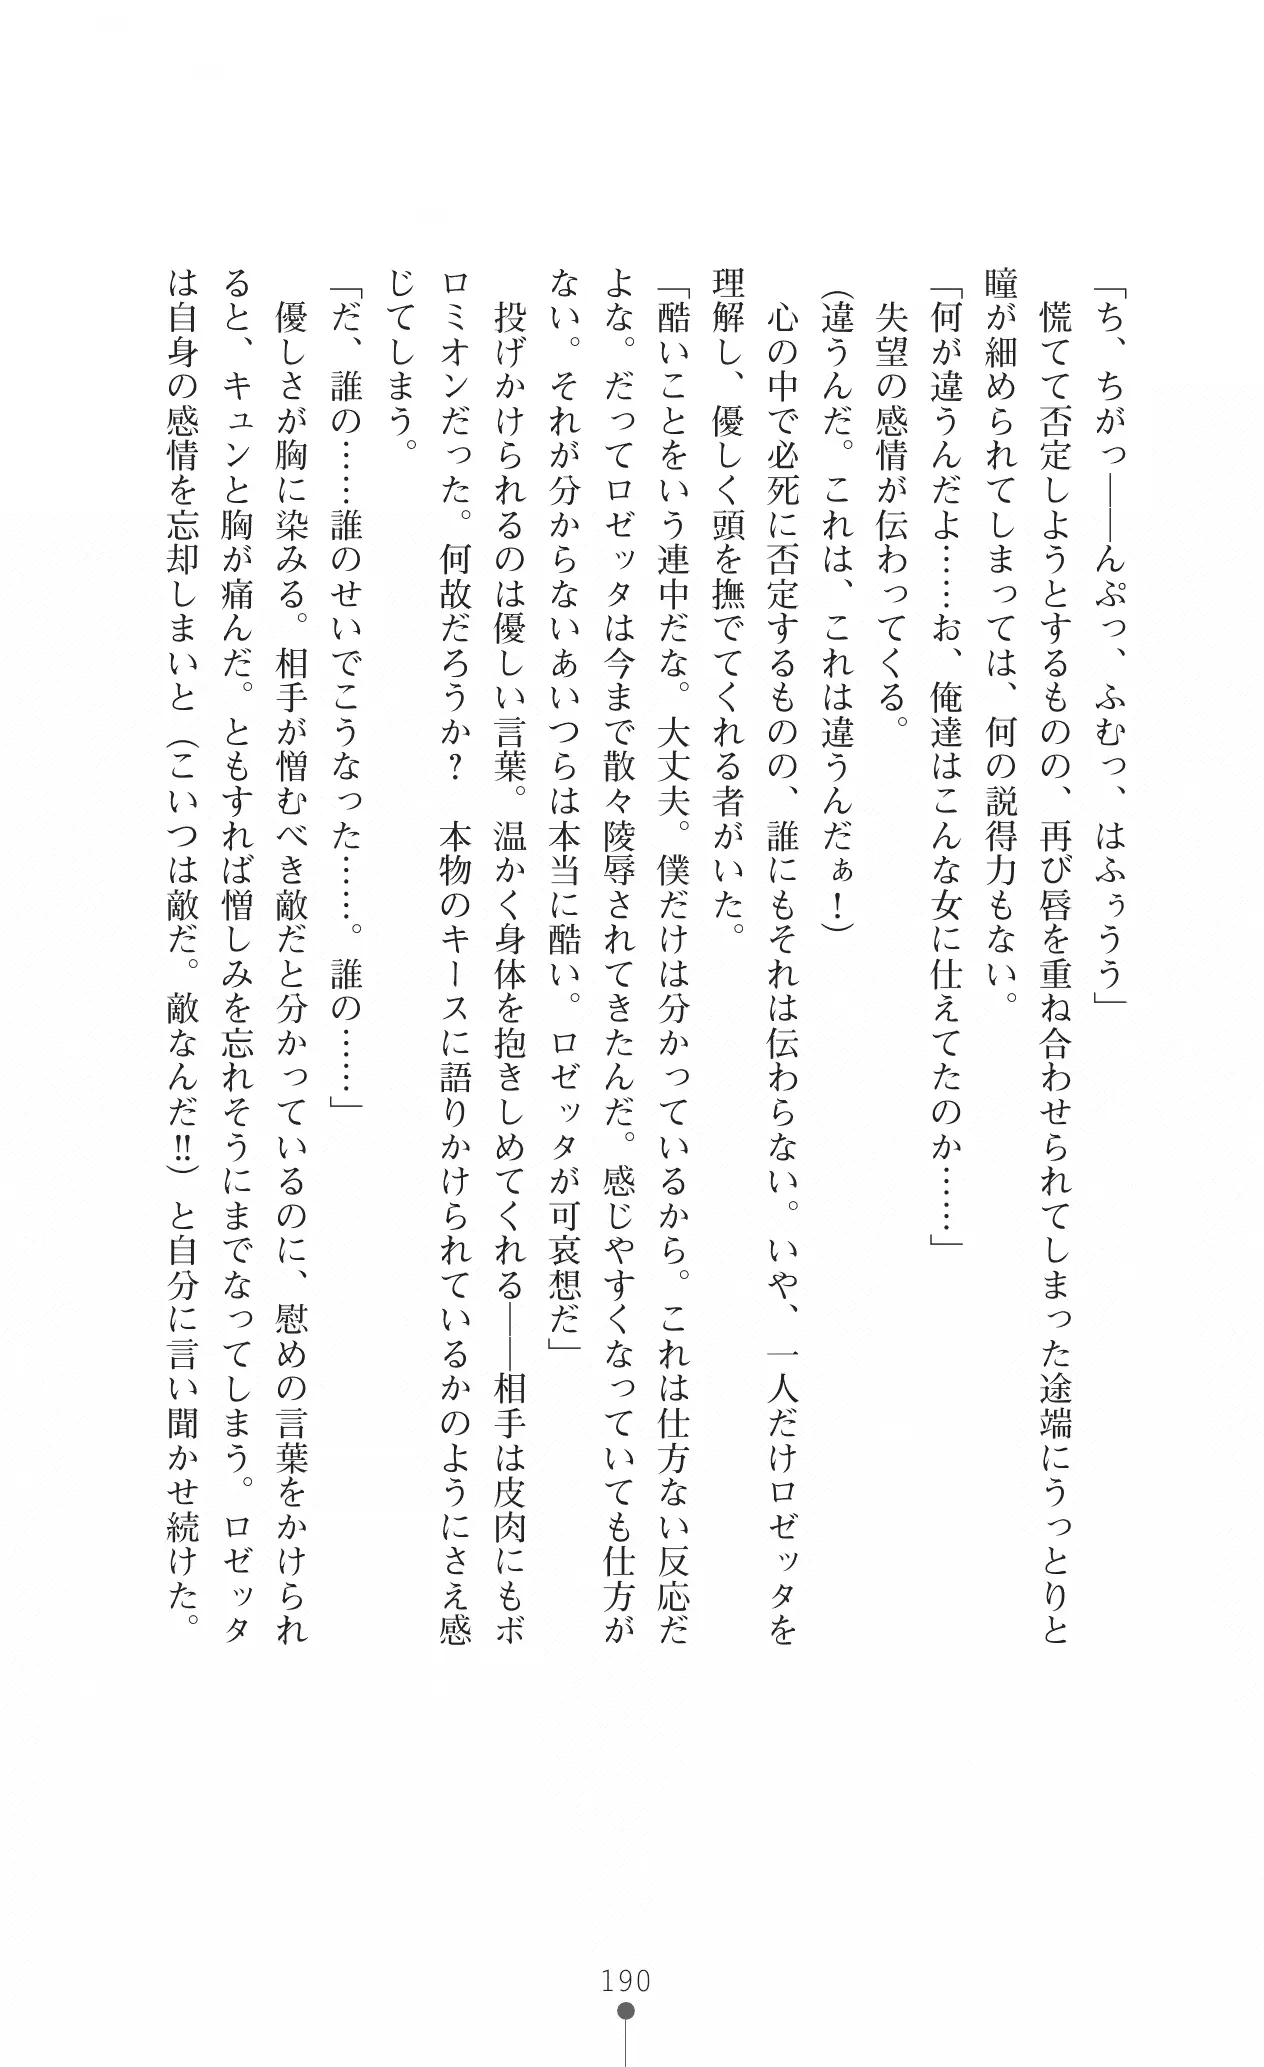 「ち、ちがっ――んぷっ、ふむっ、はふぅうう」
　慌てて否定しようとするものの、再び唇を重ね合わせられてしまった途端にうっとりと
瞳が細められてしまっては、何の説得力もない。
「何が違うんだよ……お、俺達はこんな女に仕えてたのか……」
　失望の感情が伝わってくる。
（違うんだ。これは、これは違うんだぁ！）
　心の中で必死に否定するものの、誰にもそれは伝わらない。いや、一人だけロゼッタを
理解し、優しく頭を撫でてくれる者がいた。
「酷いことをいう連中だな。大丈夫。僕だけは分かっているから。これは仕方ない反応だ
よな。だってロゼッタは今まで散々陵辱されてきたんだ。感じやすくなっていても仕方が
ない。それが分からないあいつらは本当に酷い。ロゼッタが可哀想だ」
　投げかけられるのは優しい言葉。温かく身体を抱きしめてくれる――相手は皮肉にもボ
ロミオンだった。何故だろうか？　本物のキースに語りかけられているかのようにさえ感
じてしまう。
「だ、誰の……誰のせいでこうなった……。誰の……」
　優しさが胸に染みる。相手が憎むべき敵だと分かっているのに、慰めの言葉をかけられ
ると、キュンと胸が痛んだ。ともすれば憎しみを忘れそうにまでなってしまう。ロゼッタ
は自身の感情を忘却しまいと（こいつは敵だ。敵なんだ‼）と自分に言い聞かせ続けた。
190